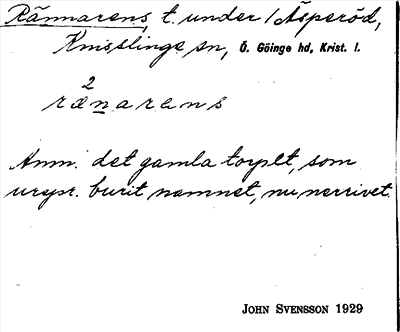 Rännarens, t. under 1 Äsperöd,
Knisslinge sn, Ö. Göinge hd, Krist. l.
2
rænarens
Anm. det gamla torpet, som
urspr. burit namnet, nu nerrivet.
JOHN SVENSSON 1929